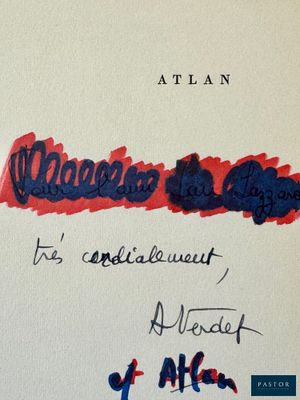 ATLAN
Pour l'ami
très cordialement,
A Verdet
et Atlan
PASTOR